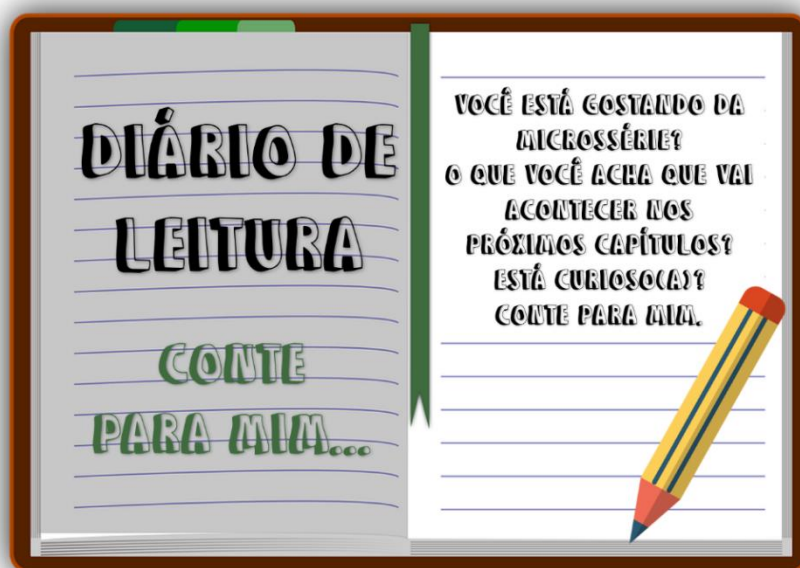 DIÁRIO DE
LEITURA
CONTE
PARA MIM...
VOCÊ ESTÁ GOSTANDO DA
MICROSSÉRIE?
O QUE VOCÊ ACHA QUE VAI
ACONTECER NOS
PRÓXIMOS CAPÍTULOS?
ESTÁ CURIOSO(A)?
CONTE PARA MIM.